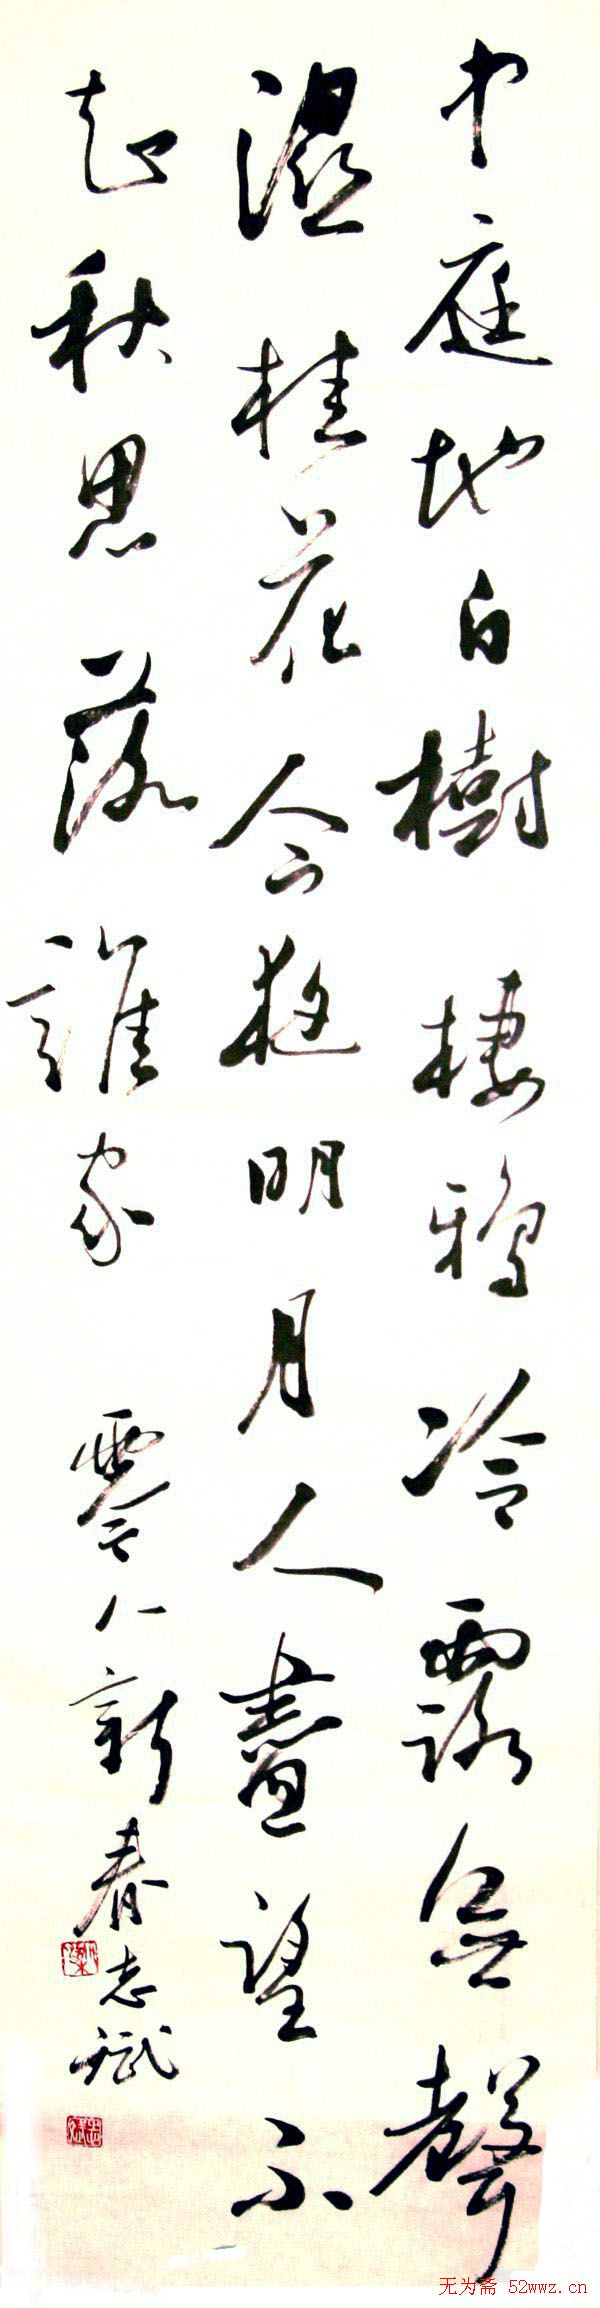 中庭地白樹棲鴉冷露無聲
濕桂花今夜明月人盡望不
知秋思落誰家 零八新春志斌
无为斋 52wwz.cn